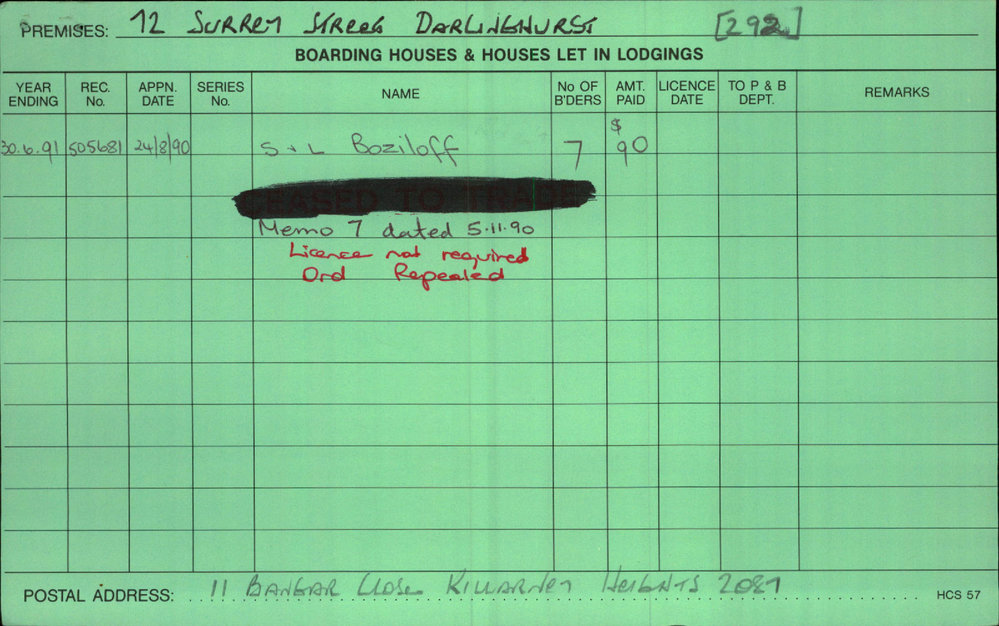 PREMISES: 72 SURREY STREET DARLINGHURST [292]
BOARDING HOUSES & HOUSES LET IN LODGINGS
YEAR ENDING REC. No. APPN. DATE SERIES No. NAME No OF B'DERS AMT. PAID LICENCE DATE TO P & B DEPT. REMARKS
30.6.91 505681 24/8/90 S + L Boziloff 7 $ 90
CEASED TO TRADE
Memo 7 dated 5.11.90
Licence not required
Ord Repealed
POSTAL ADDRESS: 11 BANGAR CLOSE KILLARNEY HEIGHTS 2087
HCS 57